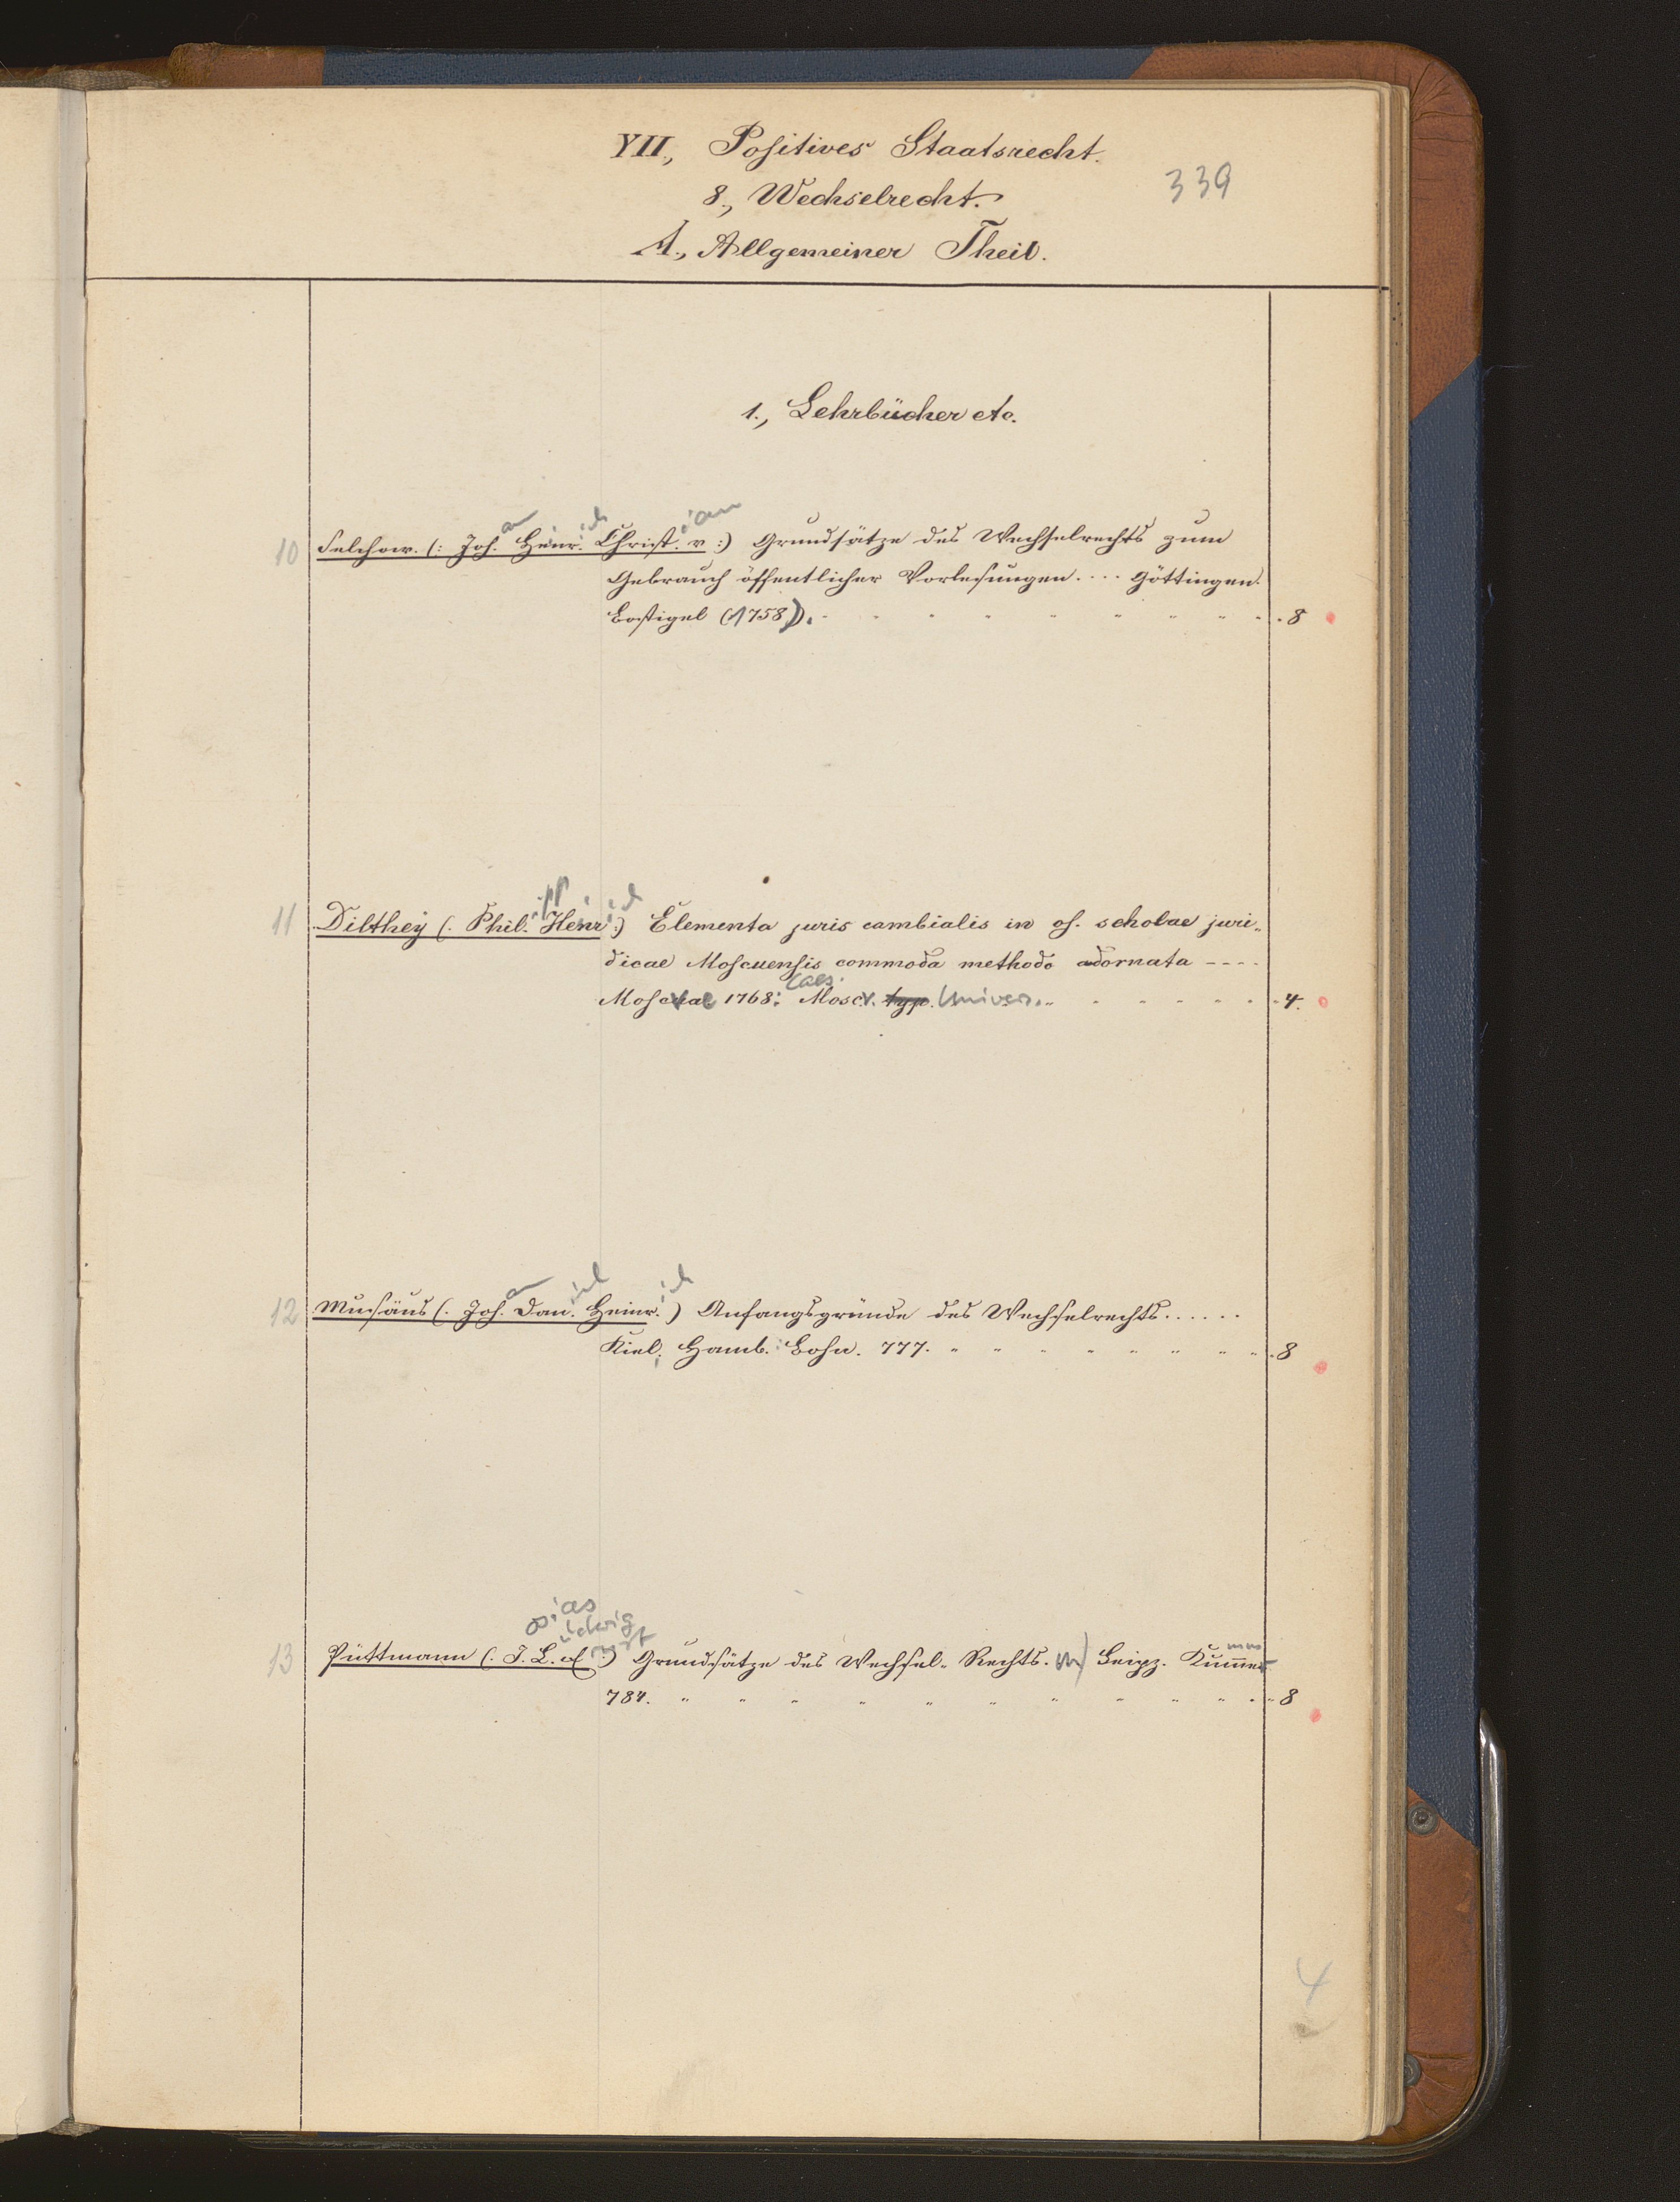 YII., Positives Staatsrecht.
339
8., Wechselrecht.
A., Allgemeiner Theil.
1., Lehrbücher etc.
10 Selchow. (: Joh.an Heinr.ich Christ.ian v :) Grundsätze des Wechselrechts zum
Gebrauch öffentlicher Vorlesungen.... Göttingen.
Bossigel (1758). 8
11 Dilthey (. Phil.ipp Heinr.ich :) Elementa juris cambialis in os. scholae juri„
dicae Moscuensis commoda methodo adornata ----
Moscvae 1768: Caes. Moscv. typ. Univers. 4.
12 Musäus (. Joh.an Dan.iel Heinr.ich ) Anfangsgründe des Wechselrechts......
Kiel; Hamb.: Bohn. 777. 8
13 Püttmann (. J.osias L.udwig E.rnst :) Grundsätze des Wechsel- Rechts. Leipz. Kummer
784. 8
4